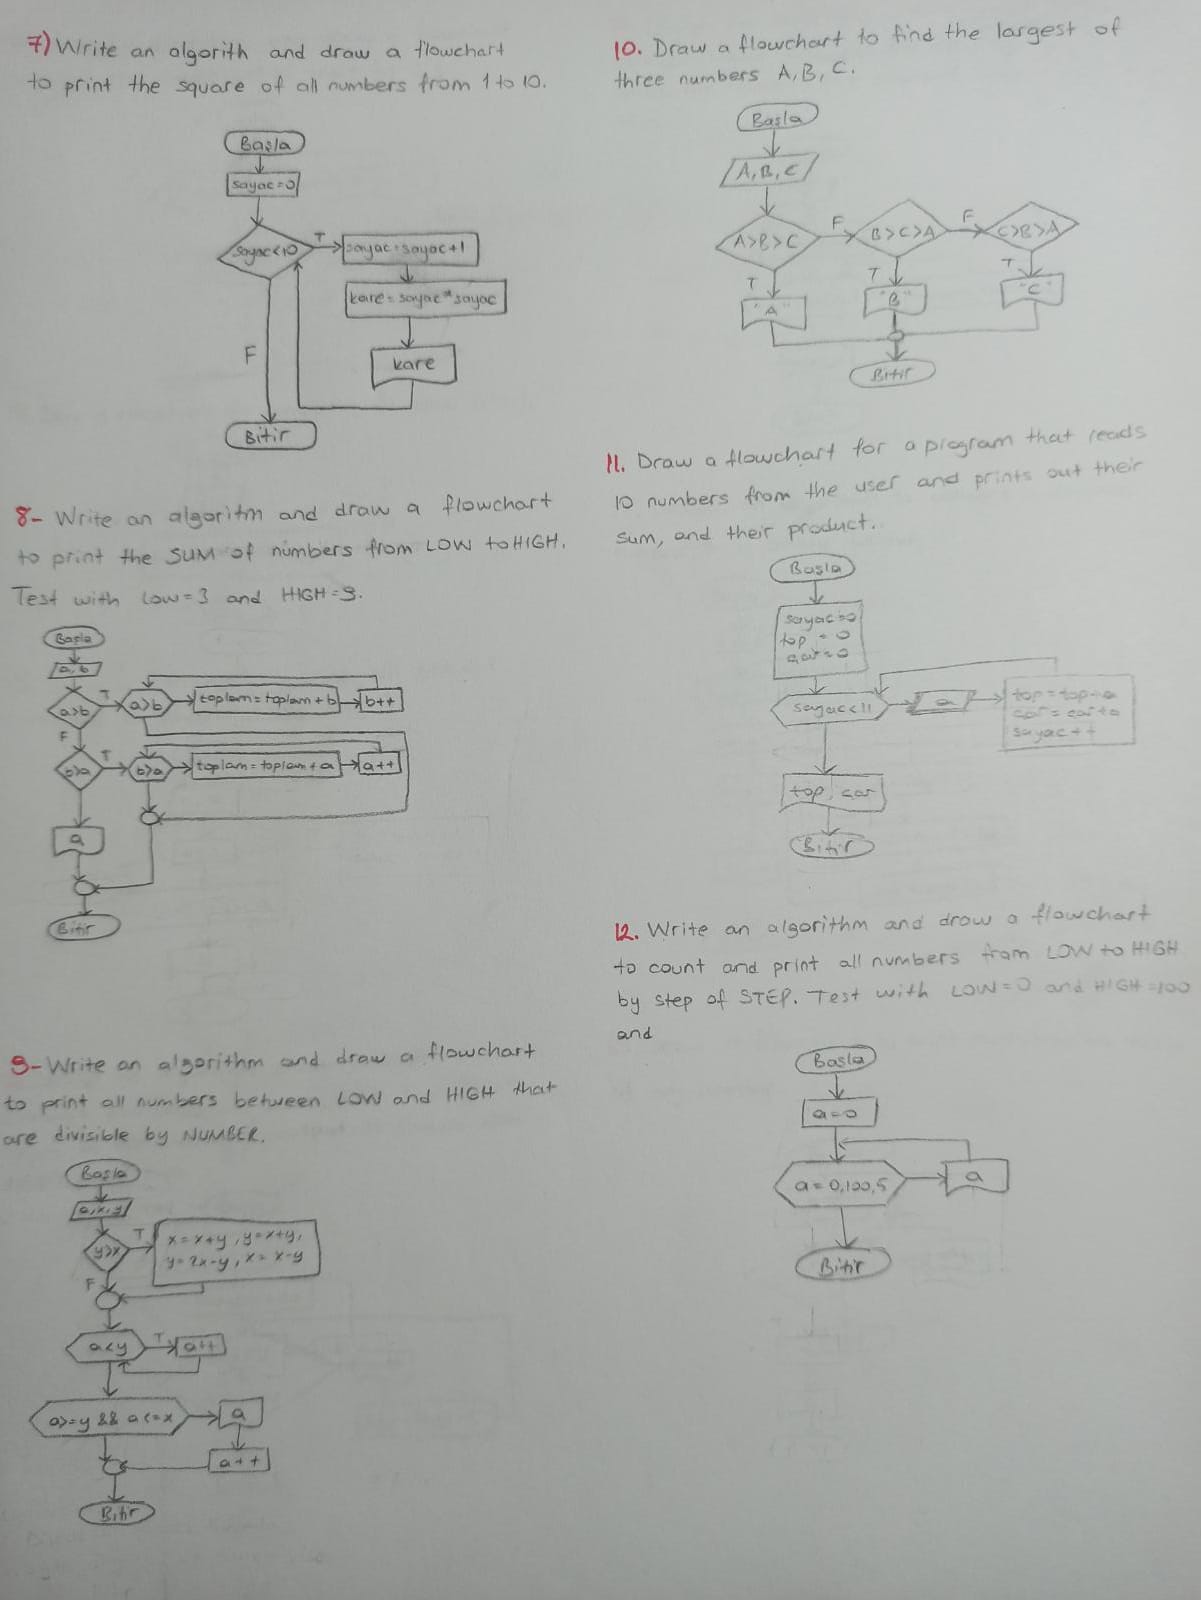 7) Write an algorith and draw a flowchart
to print the square of all numbers from 1 to 10.
Başla
sayac=0
sayac<10
T
sayac=sayac+1
kare=sayac*sayac
kare
F
Bitir
8- Write an algoritm and draw a flowchart
to print the SUM of numbers from LOW to HIGH.
Test with Low=3 and HIGH=9.
Başla
a,b
a>b
T
a>b
toplam=toplam+b
b++
F
b>a
T
b>a
toplam=toplam+a
a++
a
Bitir
9- Write an algorithm and draw a flowchart
to print all numbers between LOW and HIGH that
are divisible by NUMBER.
Başla
a,x,y
y>x
T
x=x+y, y=x+y,
y=2x-y, x=x-y
F
a<y
T
a++
a>=y && a<=x
a
a++
Bitir
10. Draw a flowchart to find the largest of
three numbers A,B,C.
Başla
A,B,C
A>B>C
F
B>C>A
F
C>B>A
T
"A"
T
"B"
T
"C"
Bitir
11. Draw a flowchart for a program that reads
10 numbers from the user and prints out their
sum, and their product.
Başla
sayac=0
top = 0
sayac<11
a
top=top+a
sayac++
top, car
Bitir
12. Write an algorithm and draw a flowchart
to count and print all numbers from LOW to HIGH
by step of STEP. Test with LOW=0 and HIGH=100
and
Başla
a=0
a=0,100,5
a
Bitir